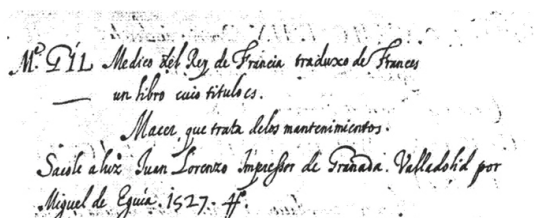 Mº. GIL Medico del Rey de Francia traduxo de Frances
un libro cuio titulo es.
Macer, que trata delos mantenimientos.
Sacole a luz Juan Lorenzo Impressor de Granada. Valladolid por
Miguel de Eguia. 1527. 4º.